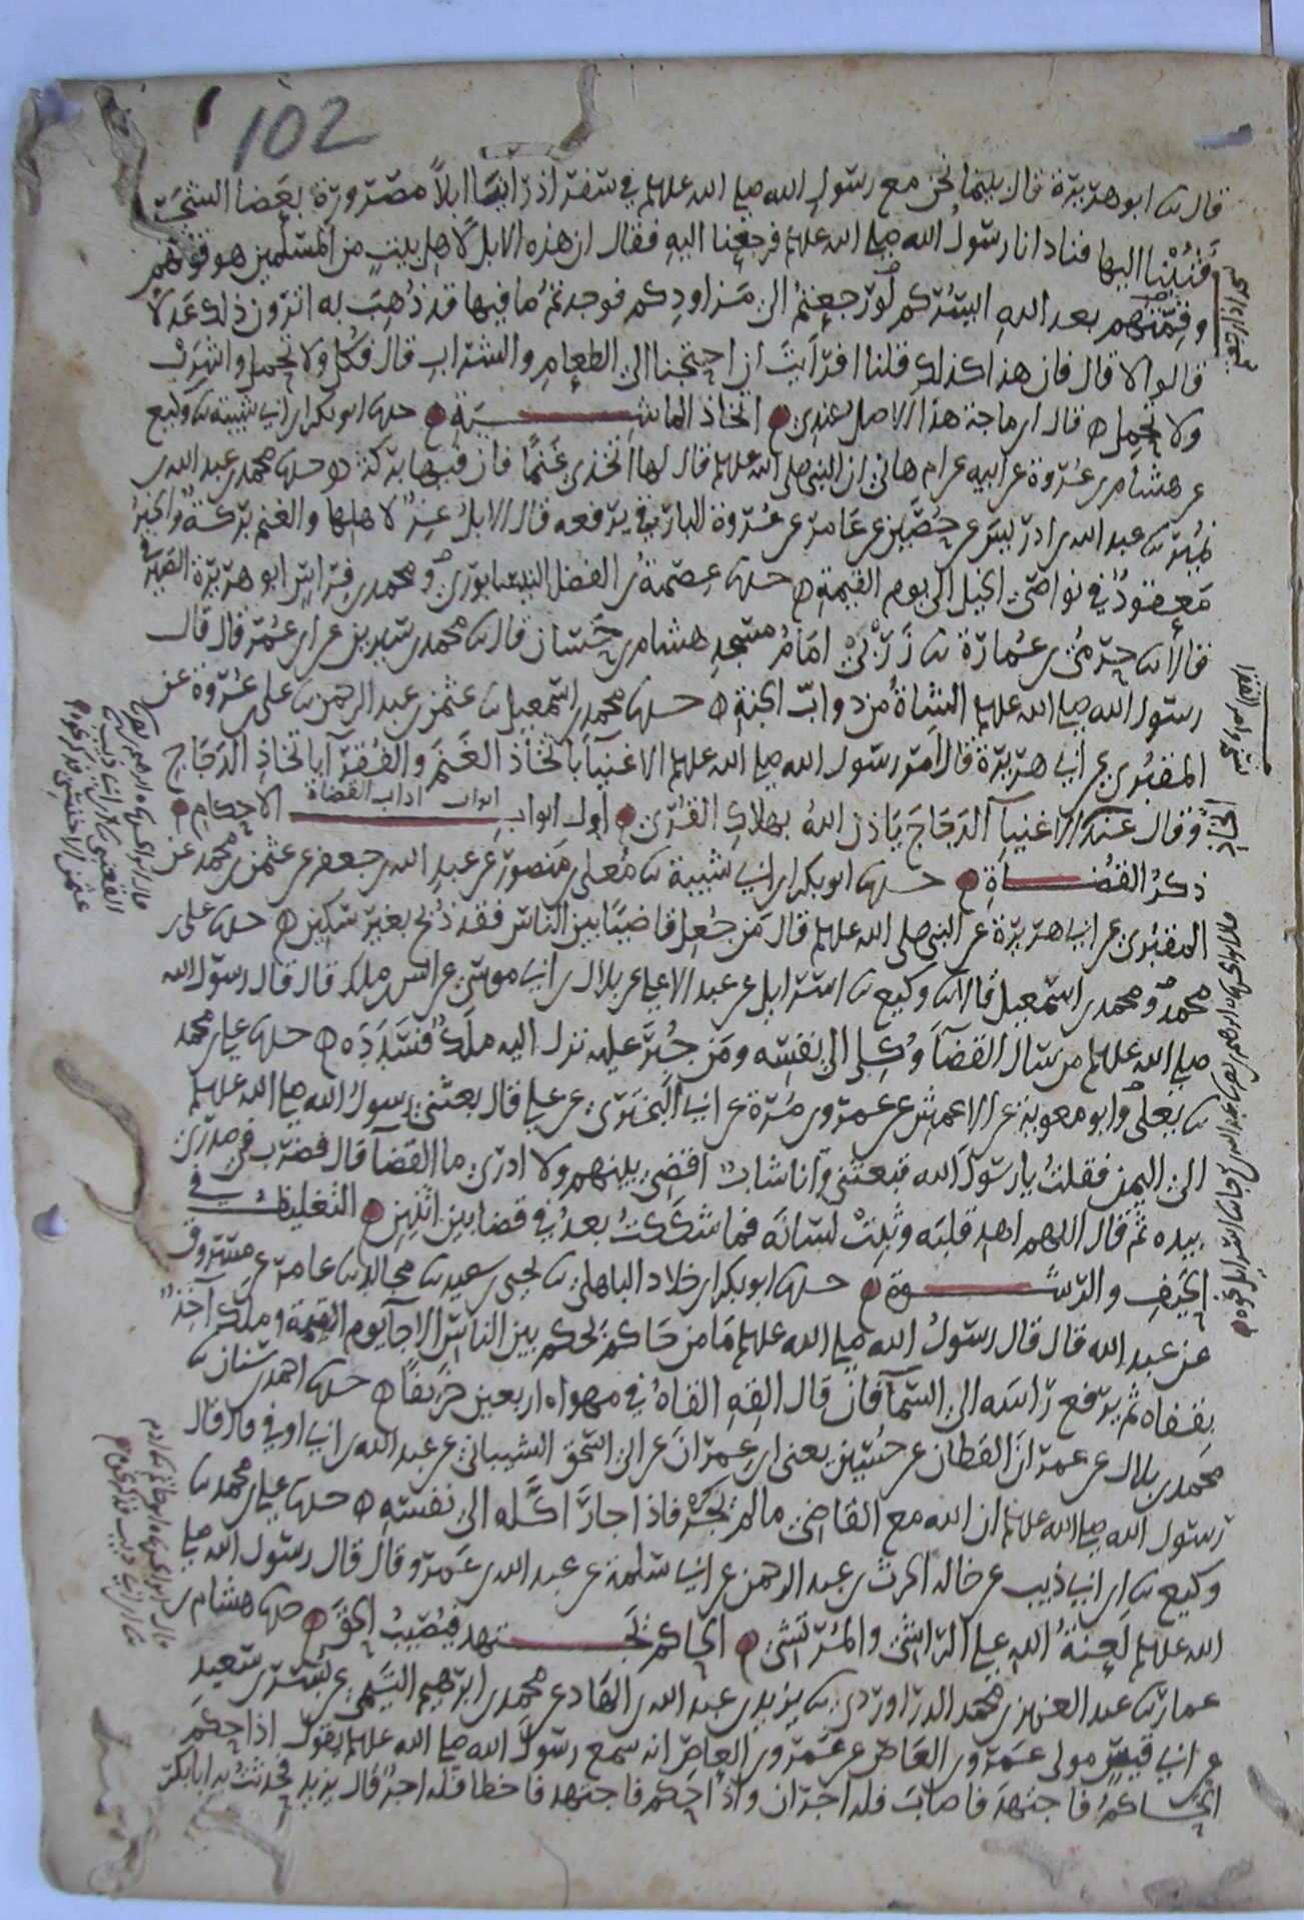 102
قال ابو هريرة قال بينما نحن مع رسول الله صلى الله عليه وسلم في سفر اذ رأينا ابلاً مصرورة بعضاه الشجر
فثبنا اليها فنادانا رسول الله صلى الله عليه وسلم فرجعنا اليه فقال ان هذه الابل لاهل بيت من المسلمين هو قوتهم
بعد الله ايسركم لو رجعتم الى مزاودكم فوجدتم ما فيها قد ذهب به اترون ذلك عدلا
قالوا لا قال فان هذا كذلك قلنا افرأيت ان احتجنا الى الطعام والشراب قال فكل ولا تحمل واشرب
ولا تحمل قال ابن ماجة هذا الاصل عندي اتخاذ الماشية حدثنا ابو بكر ابن ابي شيبة وكيع
عن هشام بن عروة عن ابيه عن ام هاني ان النبي صلى الله عليه وسلم قال لها اتخذي غنمًا فان فيها بركة حدثنا محمد بن عبد الله بن
نمير عبد الله بن ادريس عن حصين عن عامر عن عروة البارقي يرفعه قال الابل عز لاهلها والغنم بركة والخير
معقود في نواصي الخيل الى يوم القيمة حدثنا عصمة بن الفضل النيسابوري ومحمد بن فراس ابو هريرة الصيرفي
قالا حرمي بن عمارة زربي امام مسجد هشام بن حسان قال محمد بن سيرين عن ابن عمر قال قال
رسول الله صلى الله عليه وسلم الشاة من دواب الجنة حدثنا محمد بن اسمعيل عثمن بن عبد الرحمن علي بن عروة عن
المقبري عن ابي هريرة قال امر رسول الله صلى الله عليه وسلم الاغنيا باتخاذ الغنم والفقرآ باتخاذ الدجاج
وقال عند اتخاذ الاغنيآ الدجاج ياذن الله بهلاك القرى اول ابواب الاحكام
ابواب اداب القضاة
ذكر القضاة حدثنا ابو بكر ابن ابي شيبة معلى بن منصور عن عبد الله بن جعفر عن عثمن بن محمد عن
المقبري عن ابي هريرة عن النبي صلى الله عليه وسلم قال من جعل قاضيًا بين الناس فقد ذبح بغير سكين حدثنا علي بن
محمد ومحمد بن اسمعيل قالا وكيع اسرايل عن عبد الاعلى عن بلال بن ابي موسى عن انس بن ملك قال قال رسول الله
صلى الله عليه وسلم من سال القضآ وكل الى نفسه ومن جبر عليه نزل اليه ملك فسدده حدثنا علي بن محمد
يعلى وابو معوية عن الاعمش عن عمرو بن مرة عن ابي البختري عن علي قال بعثني رسول الله صلى الله عليه وسلم
الى اليمن فقلت يا رسول الله تبعثني وانا شاب اقضي بينهم ولا ادري ما القضآ قال فضرب في صدري
بيده ثم قال اللهم اهد قلبه وثبت لسانه فما شككت بعد في قضا بين اثنين التغليظ في
الحيف والرشوة حدثنا ابو بكر ابن خلاد الباهلي يحيى بن سعيد مجالد عامر عن مسروق
عن عبد الله قال قال رسول الله صلى الله عليه وسلم ما من حاكم يحكم بين الناس الا جآ يوم القيمة وملك آخذ
بقفاه ثم يرفع راسه الى السمآ فان قال القه القاه في مهواه اربعين خريفًا حدثنا احمد بن سنان
محمد بن بلال عن عمران القطان عن حسين يعني ابن عمران عن ابي اسحق الشيباني عن عبد الله بن ابي اوفى قال قال
رسول الله صلى الله عليه وسلم ان الله مع القاضي ما لم يجر فاذا جار كله الى نفسه حدثنا علي بن محمد
وكيع ابن ابي ذيب عن خاله الحرث بن عبد الرحمن عن ابي سلمة عن عبد الله بن عمرو قال قال رسول الله صلى
الله عليه وسلم لعنة الله على الراشي والمرتشي الحاكم يجتهد فيصيب الحق حدثنا هشام بن
عمار عبد العزيز بن محمد الدراوردي يزيد بن عبد الله بن الهاد عن محمد بن ابرهيم التيمي عن بسر بن سعيد
عن ابي قيس مولى عمرو بن العاص عن عمرو بن العاص انه سمع رسول الله صلى الله عليه وسلم يقول اذا حكم
الحاكم فاجتهد فاصاب فله اجران واذا حكم فاجتهد فاخطا فله اجر قال يزيد فحدثت به ابا بكر